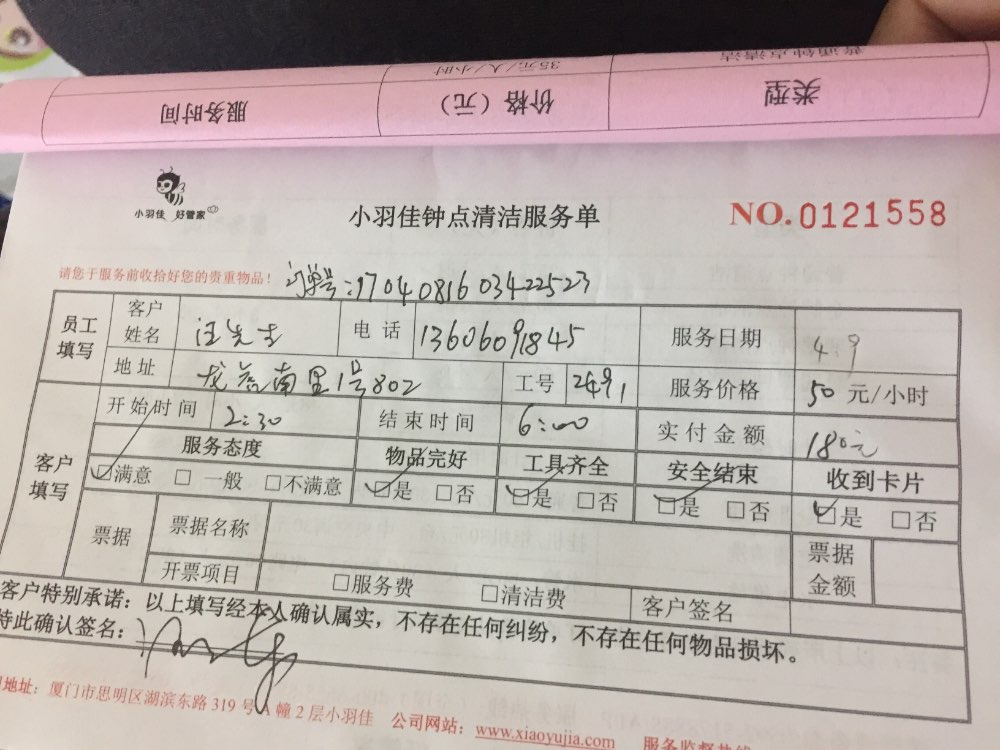 普通钟点清洁 35元/人/小时
类型 价格（元） 服务时间
小羽佳 好管家
小羽佳钟点清洁服务单
NO.0121558
请您于服务前收拾好您的贵重物品！
订单号:17040816034225523
员工填写 客户姓名 汪先生 电话 13606091845 服务日期 4.9
地址 龙岳南里1号802 工号 2491 服务价格 50元/小时
客户填写 开始时间 2:30 结束时间 6:00 实付金额 180元
服务态度 物品完好 工具齐全 安全结束 收到卡片
☑满意 □一般 □不满意 ☑是 □否 ☑是 □否 ☑是 □否 ☑是 □否
票据 票据名称 票据金额
开票项目 □服务费 □清洁费 客户签名
客户特别承诺：以上填写经本人确认属实，不存在任何纠纷，不存在任何物品损坏。
特此确认签名：
地址：厦门市思明区湖滨东路319号A幢2层小羽佳 公司网站：www.xiaoyujia.com 服务监督热线